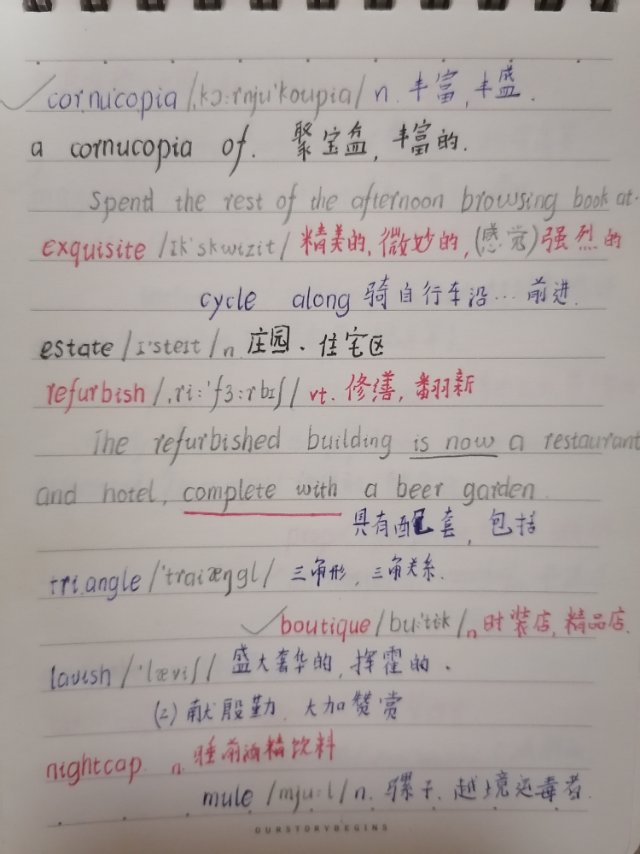 cornucopia /ˌkɔːrnjuˈkoupia/ n. 丰富,丰盛.
a cornucopia of. 聚宝盆,丰富的.
Spend the rest of the afternoon browsing book at.
exquisite /ɪkˈskwɪzit/ 精美的,微妙的,(感觉)强烈的
cycle along 骑自行车沿…前进.
estate /ɪˈsteɪt/ n. 庄园、住宅区
refurbish /ˌriːˈfɜːrbɪʃ/ vt. 修缮,翻新
The refurbished building is now a restaurant
and hotel, complete with a beer garden.
具有配套,包括
triangle /ˈtraiæŋgl/ 三角形,三角关系.
boutique /buːˈtik/ n 时装店,精品店.
lavish /ˈlæviʃ/ 盛大奢华的,挥霍的.
(2) 献殷勤、大加赞赏
nightcap. n. 睡前酒精饮料
mule /mjuːl/ n. 骡子、越境运毒者.
OURSTORYBEGINS